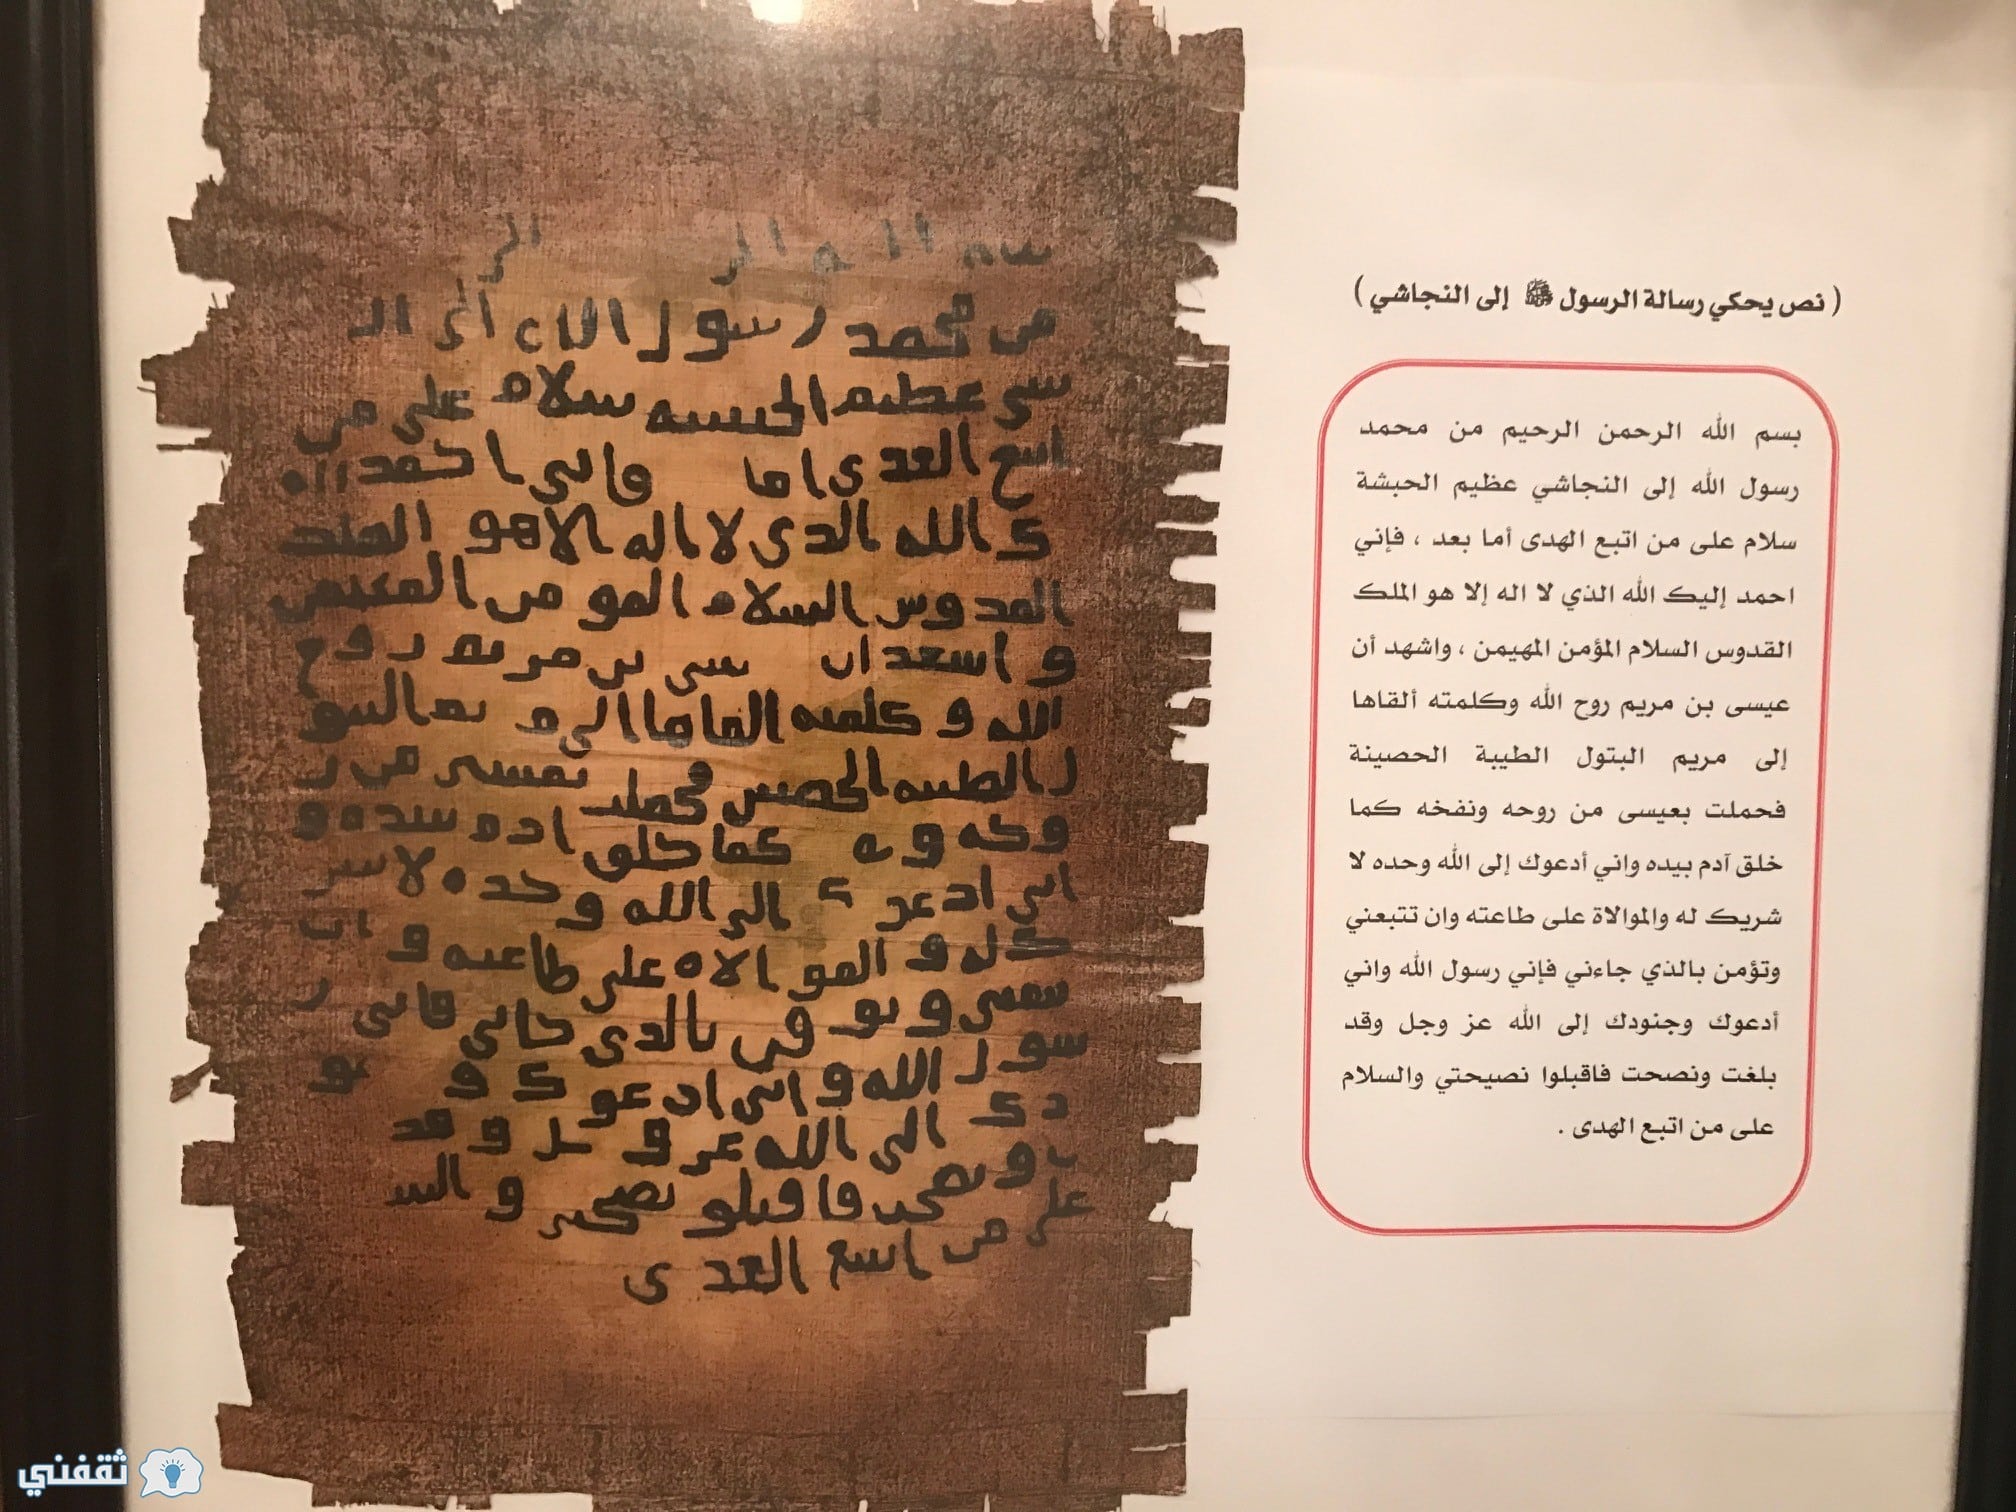 ( نص يحكي رسالة الرسول ﷺ إلى النجاشي )
بسم الله الرحمن الرحيم من محمد
رسول الله إلى النجاشي عظيم الحبشة
سلام على من اتبع الهدى أما بعد ، فإني
احمد إليك الله الذي لا اله إلا هو الملك
القدوس السلام المؤمن المهيمن ، واشهد أن
عيسى بن مريم روح الله وكلمته ألقاها
إلى مريم البتول الطيبة الحصينة
فحملت بعيسى من روحه ونفخه كما
خلق آدم بيده واني أدعوك إلى الله وحده لا
شريك له والموالاة على طاعته وان تتبعني
وتؤمن بالذي جاءني فإني رسول الله واني
أدعوك وجنودك إلى الله عز وجل وقد
بلغت ونصحت فاقبلوا نصيحتي والسلام
على من اتبع الهدى .
محمد رسول
عظيم الحبشه سلام على من
اتبع الهدى اما فانى احمد
ك الله الذى لا اله الا هو الملك
القدوس السلام المومن المهيمن
و اشهد ان بن مريم روح
الله و كلمته القاها الى
ل الطيبه
كما خلق ادم بيده و
انى ادعو ك الى الله وحده لا شر
ك له و الموالاه على طاعته و ان
بالذى فانى ر
سول الله و انى ادعو ك و
الى الله عز و جل و قد
فاقبلو و السـ
على من اتبع الهدى
ثقفني